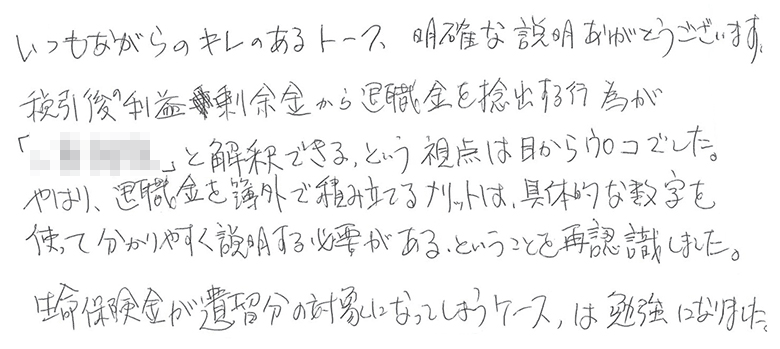 いつもながらのキレのあるトーク、明確な説明ありがとうございます。
税引後の利益剰余金から退職金を捻出する行為が
「 」と解釈できる、という視点は目からウロコでした。
やはり、退職金を簿外で積み立てるメリットは、具体的な数字を
使って分かりやすく説明する必要がある、ということを再認識しました。
生命保険金が遺留分の対象になってしまうケース、は勉強になりました。